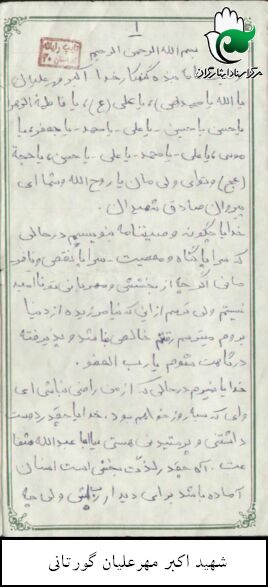 مرکز اسناد ایثارگران
۱
بسم الله الرحمن الرحیم
بنده گنهکار خدا اکبر مهرعلیان
یا الله یا محمد (ص)، یا علی (ع)، یا فاطمة الزهرا
یا حسن یا حسین - یا علی - یا محمد - یا جعفر، یا
موسی، یا علی - یا محمد - یا علی - یا حسن، یا حجة
(عج) و توای ولی مان یا روح الله و شما ای
پیروان صادق شهیدان.
خدایا چگونه وصیتنامه بنویسم در حالی
که سراپا گناه و معصیت - سراپا نقص و نافر
مانی اگر چه از بخششش و مهربانی تو ناامید
نیستم ولی ترسم از این که ناخالص زبده از دنیا
بروم و میترسم رفتنم خالص نباشد و پذیرفته
درگاهت نشوم یا رب العفو.
خدایا بمیرم در حالی که از من راضی نباشی ای
وای که سیه روز خواهم بود. خدایا چقدر دوست
داشتنی و پرستیدنی هستی یا ابا عبدالله شفا
عت. آه چقدر لذت بخش است انسان
آماده باشد برای دیدار ربش ولی چه
شهید اکبر مهرعلیان گورتانی